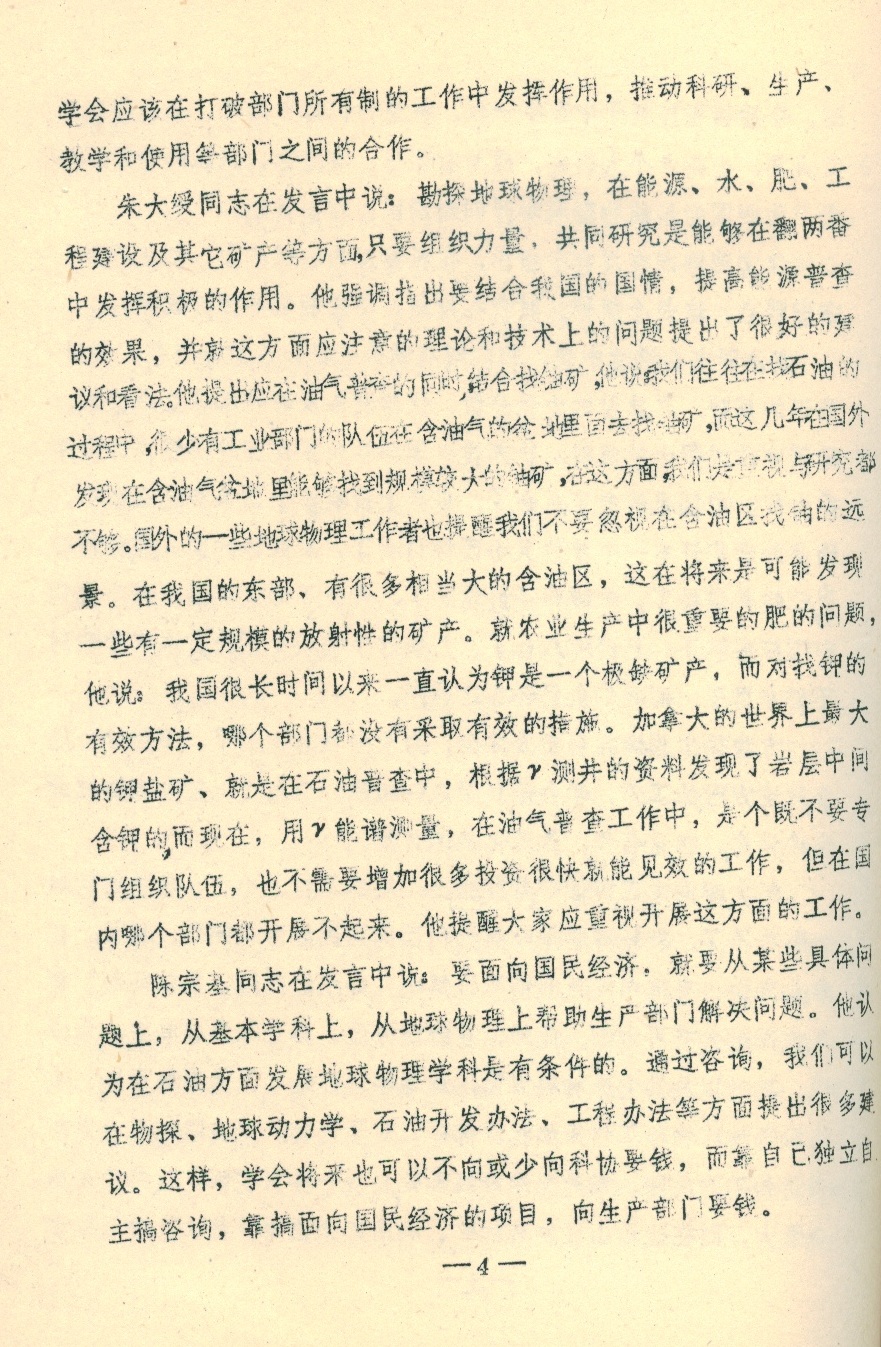 学会应该在打破部门所有制的工作中发挥作用，推动科研、生产、
教学和使用等部门之间的合作。
朱大绶同志在发言中说：勘探地球物理，在能源、水、肥、工
程建设及其它矿产等方面，只要组织力量，共同研究是能够在翻两番
中发挥积极的作用。他强调指出要结合我国的国情，提高能源普查
的效果，并就这方面应注意的理论和技术上的问题提出了很好的建
议和看法。他提出应在油气普查的同时，结合找铀矿，他说：我们往往在找石油的
过程中，很少有工业部门的队伍在含油气的盆地里面去找铀矿，而这几年在国外
发现在含油气盆地里能够找到规模较大的铀矿，在这方面，我们去重视与研究都
不够。国外的一些地球物理工作者也提醒我们不要忽视在含油区找铀的远
景。在我国的东部、有很多相当大的含油区，这在将来是可能发现
一些有一定规模的放射性的矿产。就农业生产中很重要的肥的问题，
他说：我国很长时间以来一直认为钾是一个极缺矿产，而对找钾的
有效方法，哪个部门都没有采取有效的措施。加拿大的世界上最大
的钾盐矿、就是在石油普查中，根据γ测井的资料发现了岩层中间
含钾的，而现在，用γ能谱测量，在油气普查工作中，是个既不要专
门组织队伍，也不需要增加很多投资很快就能见效的工作，但在国
内哪个部门都开展不起来。他提醒大家应重视开展这方面的工作。
陈宗基同志在发言中说：要面向国民经济，就要从某些具体问
题上，从基本学科上，从地球物理上帮助生产部门解决问题。他认
为在石油方面发展地球物理学科是有条件的。通过咨询，我们可以
在物探、地球动力学、石油开发办法、工程办法等方面提出很多建
议。这样，学会将来也可以不向或少向科协要钱，而靠自己独立自
主搞咨询，靠搞面向国民经济的项目，向生产部门要钱。
—4—